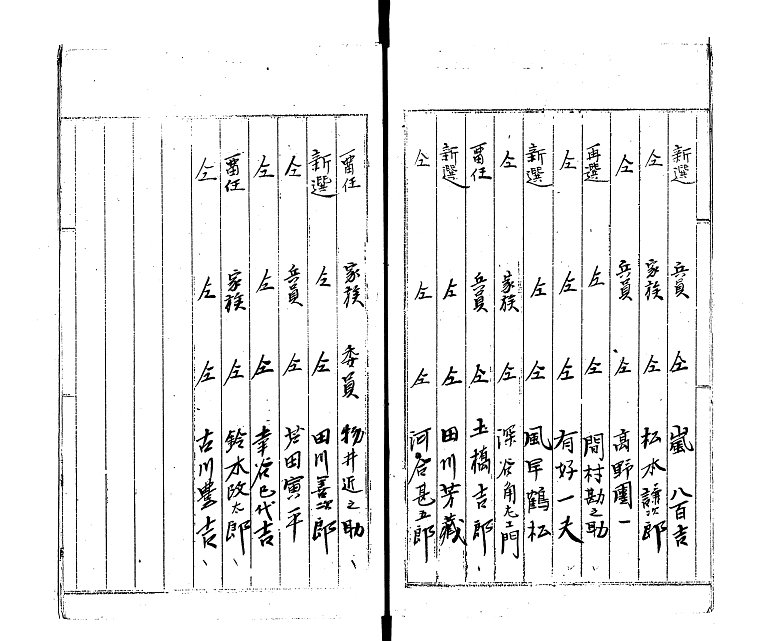 新選 兵員 仝 嵐 八百吉
仝 家族 仝 松本諒次郎
仝 兵員 仝 高野園一
再選 仝 仝 間村勘之助、
仝 仝 仝 有好一夫
新選 仝 仝 風早鶴松
仝 家族 仝 深谷角左エ門
畱任 兵員 仝 土橋吉郎、
新選 仝 仝 田川芳藏
仝 仝 仝 河合甚五郎
畱任 家族 委員 物井近之助、
新選 仝 仝 田川善次郎
仝 兵員 仝 岩田寅平
仝 仝 仝 幸谷巳代吉
畱任 家族 仝 鈴木政太郎、
仝 仝 仝 古川豊吉、